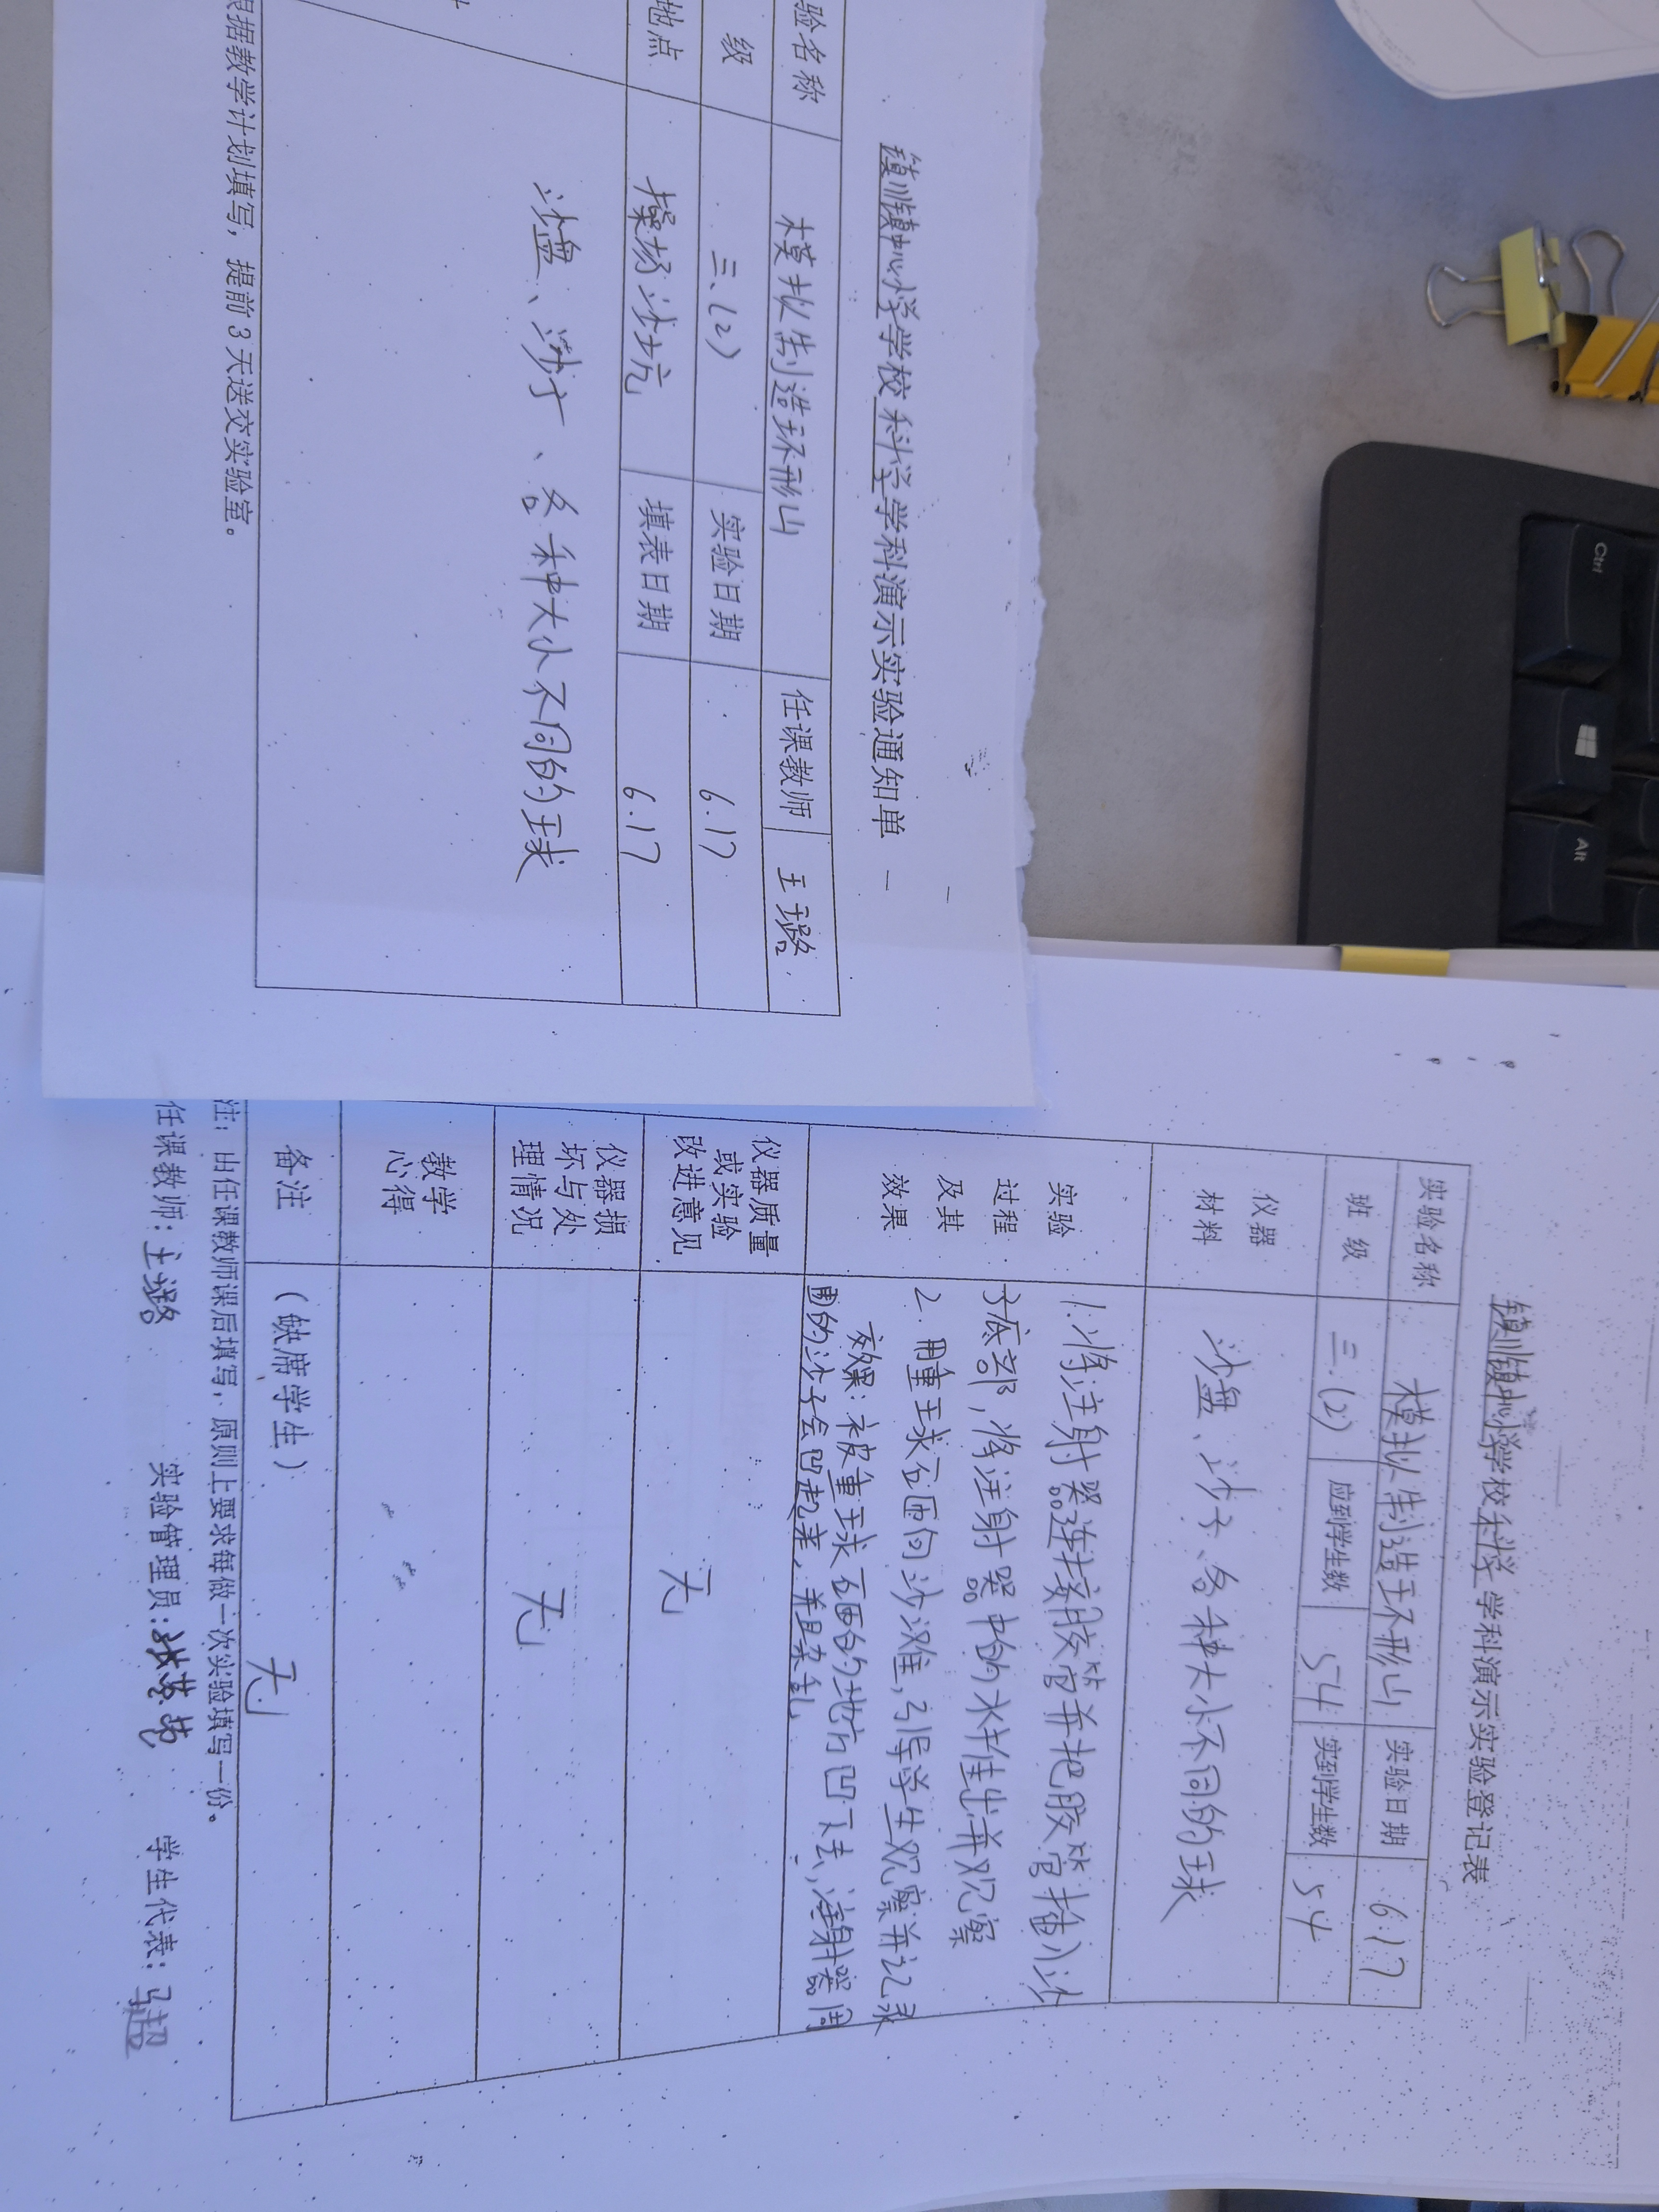 镇川镇中心小学学校 科学 学科演示实验通知单
验名称 模拟制造环形山 任课教师 王璐
级 三.(2) 实验日期 6.17
地点 操场沙坑 填表日期 6.17
沙盘、沙子、各种大小不同的球
根据教学计划填写，提前3天送交实验室。
镇川镇中心小学学校 科学 学科演示实验登记表
实验名称 模拟制造环形山 实验日期 6.17
班级 三.(2) 应到学生数 54 实到学生数 54
仪器
材料
沙盘、沙子、各种大小不同的球
实验
过程
及其
效果
1.将注射器连接胶管并把胶管插入沙
子底部，将注射器中的水推出并观察
2.用重球砸向沙滩，引导学生观察并记录
效果：被重球砸的地方凹下去，注射器周
围的沙子会凹起来，并且杂乱
仪器质量
或实验
改进意见
无
仪器损
坏与处
理情况
无
教学
心得
备注 (缺席学生) 无
注：由任课教师课后填写，原则上要求每做一次实验填写一份。
任课教师：王璐 实验管理员： 学生代表：马超
Ctrl
Alt